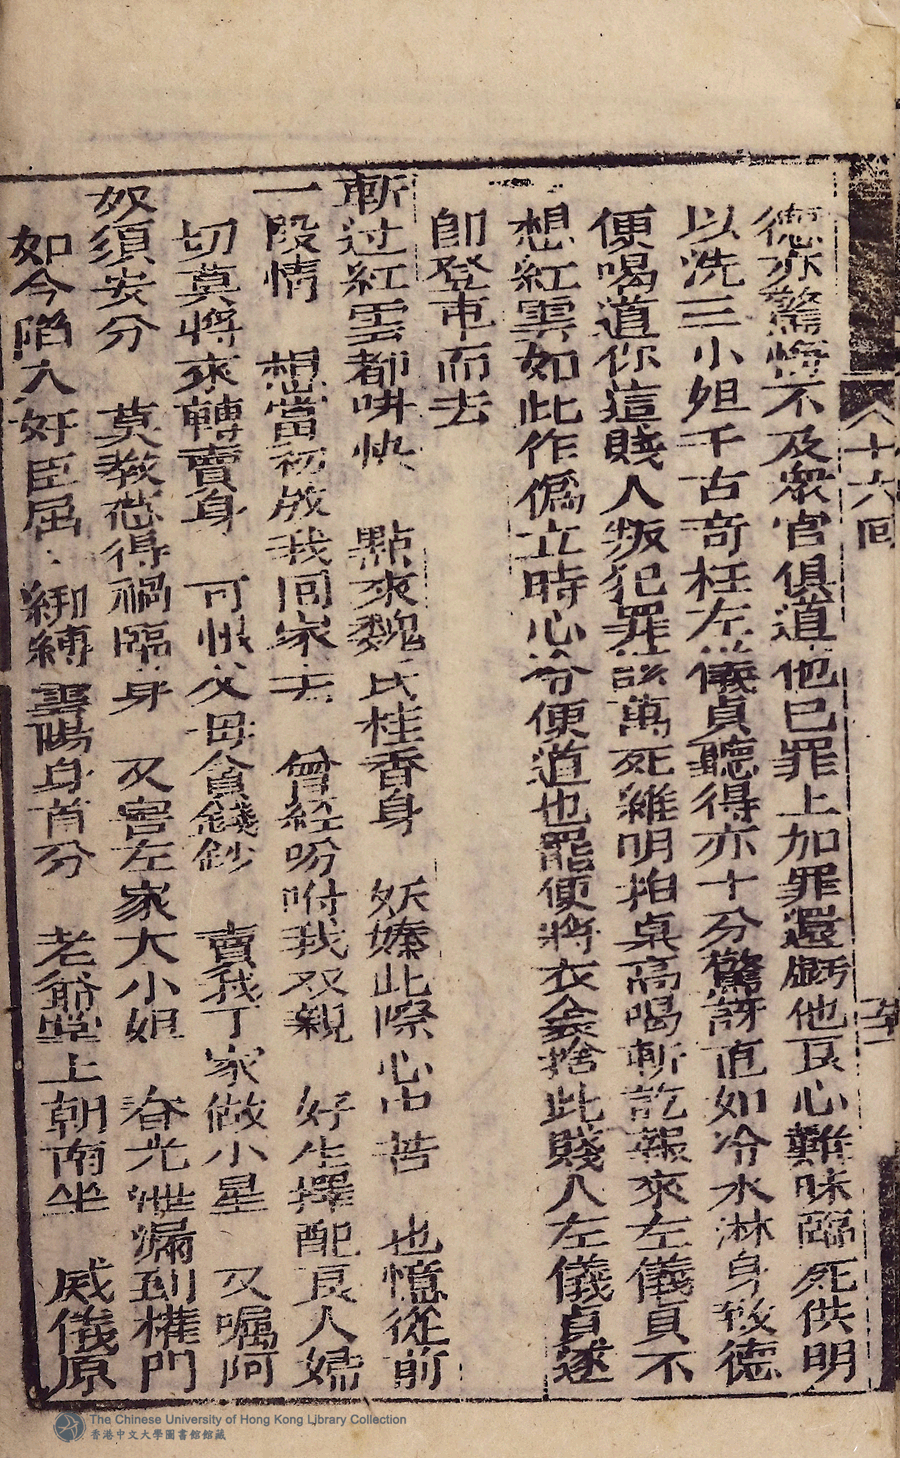 八十六囘
德亦驚悔不及衆官俱道他已罪上加罪還虧他良心難昧臨死供明
以洗三小姐千古奇枉左儀貞聽得亦十分驚訝直如冷水淋身致德
便喝道你這賤人叛犯罪該萬死維明拍桌高喝斬訖報來左儀貞不
想紅雲如此作僞立時心冷便道也罷便將衣衾捨此賤人左儀貞遂
卽登車而去
斬过紅雲都呌快 點來魏氏桂香身 妖嬈此際心中苦 也憶從前
一段情 想當初放我囘家去 曾經吩咐我双親 好生擇配良人婦
切莫將來轉賣身 可恨父母貪錢鈔 賣我丁家做小星 又嘱阿
奴須安分 莫教惹得禍臨身 又害左家大小姐 春光泄漏到權門
如今陷入奸臣屈 綁縛雲陽身首分 老爺堂上朝南坐 威儀原
The Chinese University of Hong Kong Library Collection
香港中文大學圖書館館藏